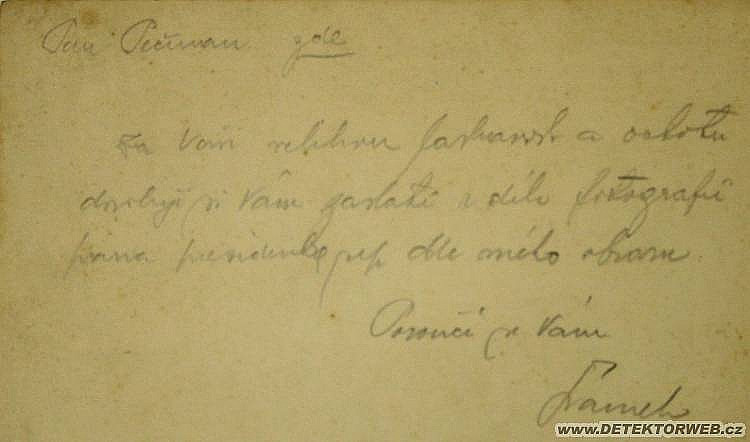 Pan Pečman zde
Za Vaši velikou laskavost a ochotu
dovoluji si Vám zaslati díle fotografii
pana presidenta rep dle mého obrazu.
Poroučí se Vám
Šámek
www.DETEKTORWEB.cz